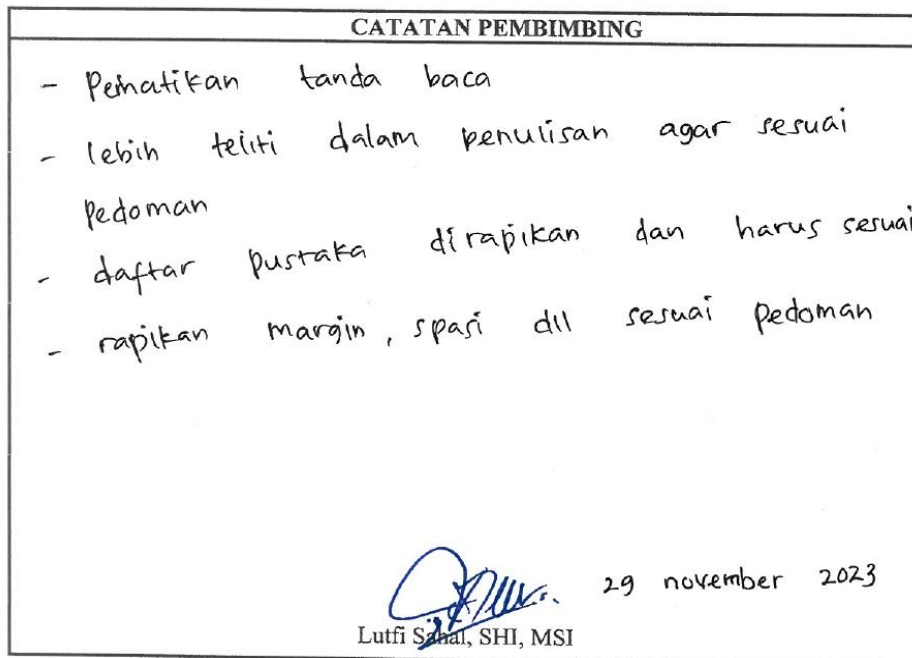 CATATAN PEMBIMBING
- Perhatikan tanda baca
- lebih teliti dalam penulisan agar sesuai
pedoman
- daftar pustaka dirapikan dan harus sesuai
- rapikan margin, spasi dll sesuai pedoman
29 november 2023
Lutfi Sahal, SHI, MSI